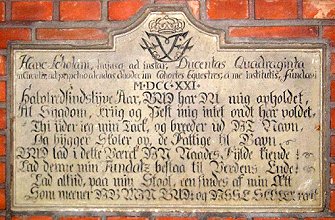 Hanc Scholam, hujusq ad instar, Ducentas Quadraginta
duodecim Cohortes Equestres, a me Institutis, fundavi
M·DCC·XXI.
Halvtredsindstyve Aar, GUD har DU mig opholdet,
At Sygdom, Kriig og Pest mig intet ondt har voldet,
Thi yder jeg min Tack, og breeder ud DIT Navn,
Og bygger Skoler op, de Fattige til Gavn,
GUD lad i dette Værck DIN Naades Fylde kiende!
Lad denne min Fundatz bestaa til Verdens Ende!
Lad altid, paa min Stool, een findes af min Æt
Som meener DIG MIN GUD, og DISSE SKOLER ret!